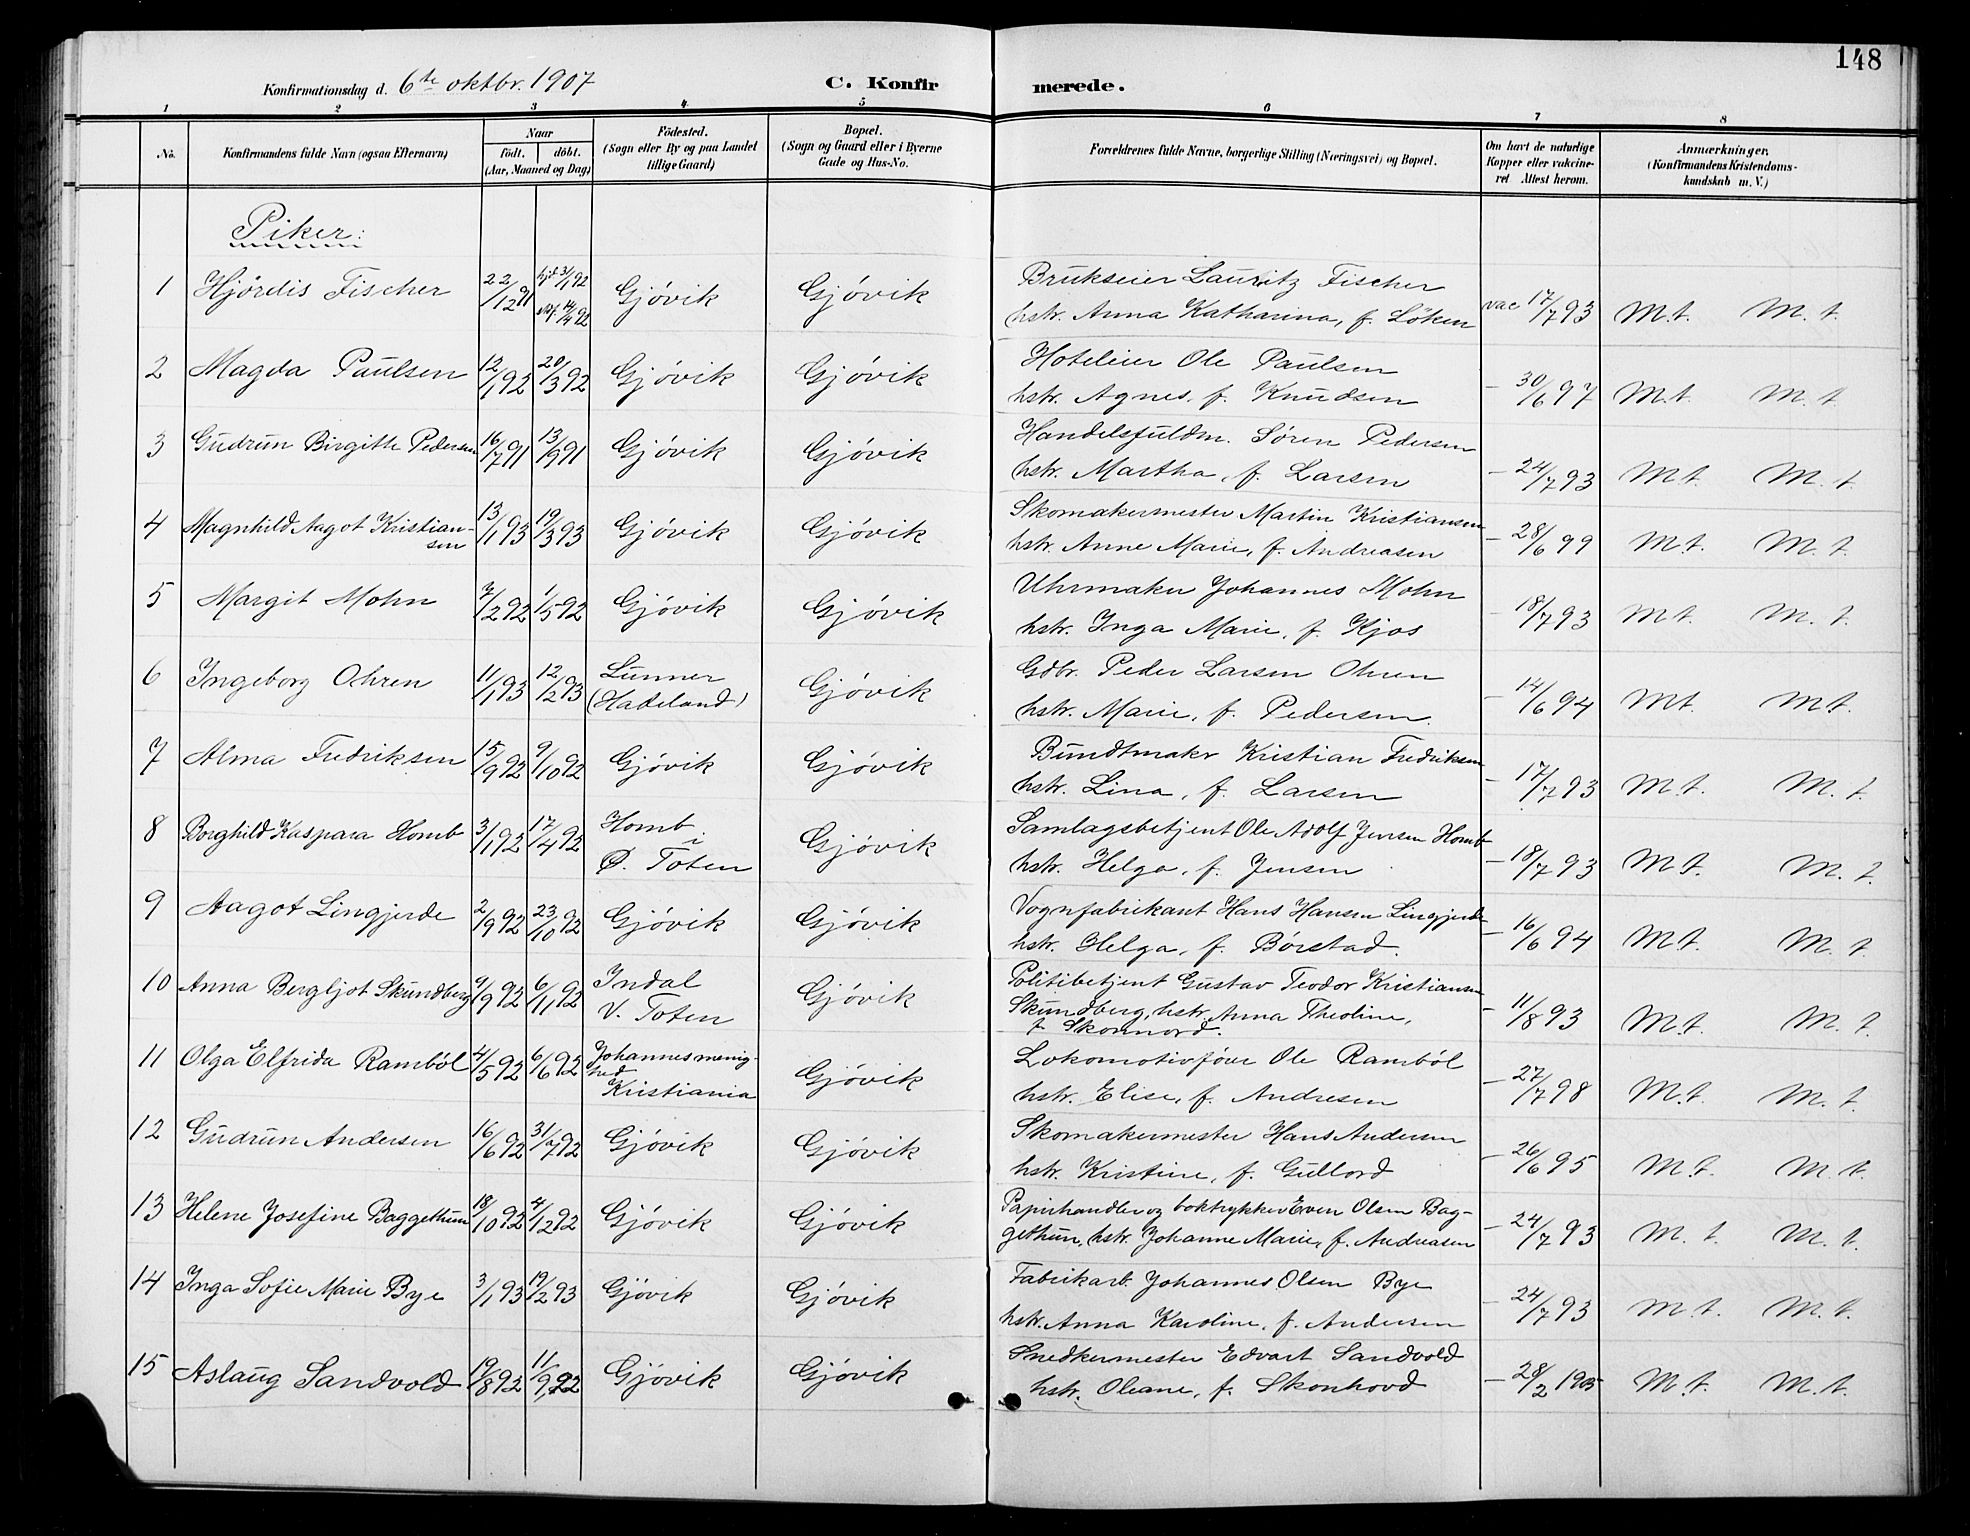 148
Konfirmationsdag d. 6te oktbr. 1907 C. Konfirmerede.
1 2 3 4 5 6 7 8
No. Konfirmandens fulde Navn (ogsaa Efternavn) Naar födt. döbt. (Aar, Maaned og Dag) Födested. (Sogn eller By og paa Landet tillige Gaard) Bopæl. (Sogn og Gaard eller i Byerne Gade og Hus-No. Forældrenes fulde Navne, borgerlige Stilling (Næringsvei) og Bopæl. Om havt de naturlige Kopper eller vakcineret Attest herom. Anmærkninger, (Konfirmandens Kristendomskundskab m. V.)
Piker:
1 Hjördis Fischer 22/12 91 hjd 31/1 92 14/4 92 Gjövik Gjövik Brukseier Lauritz Fischer
hstr. Anna Katharina, f. Löken vac 17/7 93 M.t. M.t.
2 Magda Paulsen 12/1 92 20/3 92 Gjövik Gjövik Hoteleier Ole Paulsen
hstr. Agnes, f. Knudsen – 30/6 97 M.t. M.t
3 Gudrun Birgitte Pedersen 16/7 91 13/9 91 Gjövik Gjövik Handelsfuldm. Sören Pedersen
hstr. Martha, f. Larsen – 24/7 93 M.t. M.t.
4 Magnhild Aagot Kristian-
sen 13/1 93 19/3 93 Gjövik Gjövik Skomakermester Martin Kristiansen
hstr. Anne Marie, f. Andreasen – 28/6 99 M.t. M.t.
5 Margit Mohn 7/2 92 1/5 92 Gjövik Gjövik Uhrmaker Johannes Mohn
hstr. Inga Marie, f. Kjos – 18/7 93 M.t. M.t.
6 Ingeborg Ohren 11/1 93 12/2 93 Lunner
(Hadeland) Gjövik Gdbr. Peder Larsen Ohren
hstr. Marie, f. Pedersen. – 14/6 94 M.t. M.t.
7 Alma Fredriksen 15/9 92 9/10 92 Gjövik Gjövik Bundtmaker Kristian Fredriksen
hstr. Lina, f. Larsen – 17/7 93 M.t. M.t.
8 Borghild Kaspara Homb 3/1 92 17/4 92 Homb i
Ø. Toten Gjövik Samlagsbetjent Ole Adolf Jensen Homb
hstr. Helga, f. Jensen – 18/7 93 M.t. M.t.
9 Aagot Lingjerde 2/9 92 23/10 92 Gjövik Gjövik Vognfabrikant Hans Hansen Lingjerde
hstr. Helga, f. Börstad. – 16/6 94 M.t. M.t.
10 Anna Bergljot Skundberg 9/9 92 6/11 92 Indal
V. Toten Gjövik Politibetjent Gustav Teodor Kristiansen
Skundberg, hstr. Anna Theoline,
f. Skonnord. – 11/8 93 M.t. M.t.
11 Olga Elfrida Ramböl 4/5 92 6/6 92 Johannes menig-
hed
Kristiania Gjövik Lokomotivförer Ole Ramböl
hstr. Elise, f. Andresen – 27/7 98 M.t. M.t.
12 Gudrun Andersen 16/6 92 31/7 92 Gjövik Gjövik Skomakermester Hans Andersen
hstr. Kristine, f. Gullord – 26/6 95 M.t. M.t.
13 Helene Josefine Baggethun 18/10 92 4/12 92 Gjövik Gjövik Papirhandler og boktrykker Even Olsen Bag-
gethun, hstr. Johanne Marie, f. Andreasen – 24/7 93 M.t. M.t.
14 Inga Sofie Marie Bye 3/1 93 19/2 93 Gjövik Gjövik Fabrikarb. Johannes Olsen Bye
hstr. Anna Karoline, f. Andersen – 24/7 93 M.t. M.t.
15 Aslaug Sandvold 19/8 92 11/9 92 Gjövik Gjövik Snedkermester Edvart Sandvold
hstr. Oleane, f. Skonhovd – 28/2 1905 M.t. M.t.